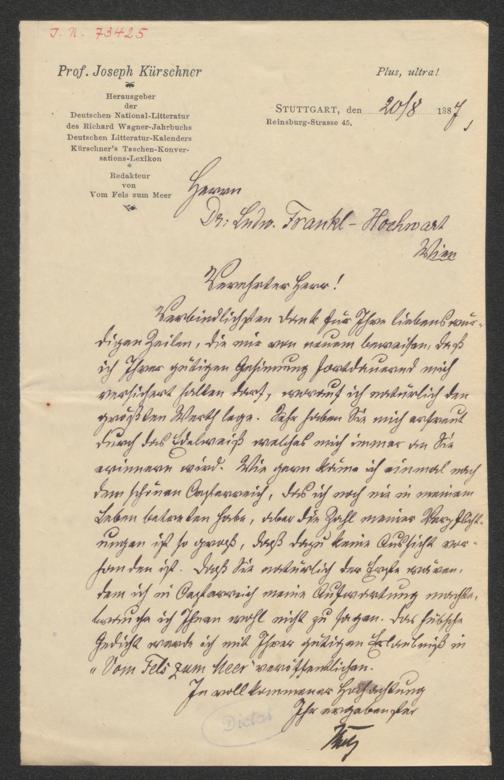 J. N. 73425
Prof. Joseph Kürschner
Herausgeber
der
Deutschen National-Litteratur
des Richard Wagner-Jahrbuchs
Deutschen Litteratur-Kalenders
Kürschner's Taschen-Konver-
sations-Lexikon
*
Redakteur
von
Vom Fels zum Meer
Plus, ultra!
STUTTGART, den 20/8 1887,
Reinsburg-Strasse 45.
Herrn
Dr: Ludw. Frankl-Hochwart
Wien
Verehrter Herr!
Verbindlichsten Dank für Ihre liebenswür-
digen Zeilen, die mir von neuem beweisen, daß
ich Ihrer gütigen Gesinnung fortdauernd mich
versichert halten darf, worauf ich natürlich den
größten Werth lege. Sehr haben Sie mich erfreut
durch das Edelweiß welches mich immer an Sie
erinnern wird. Wie gern käme ich einmal nach
dem schönen Oesterreich, das ich noch nie in meinem
Leben betreten habe, aber die Zahl meiner Verpflicht-
ungen ist so groß, daß dazu keine Aussicht vor-
handen ist. Daß Sie natürlich der Erste wären,
dem ich in Oesterreich meine Aufwartung machte,
brauche ich Ihnen wohl nicht zu sagen. Das hübsche
Gedicht werde ich mit Ihrer gütigen Erlaubniß in
„Vom Fels zum Meer" veröffentlichen.
In vollkommener Hochachtung
Ihr ergebenster
Dictat